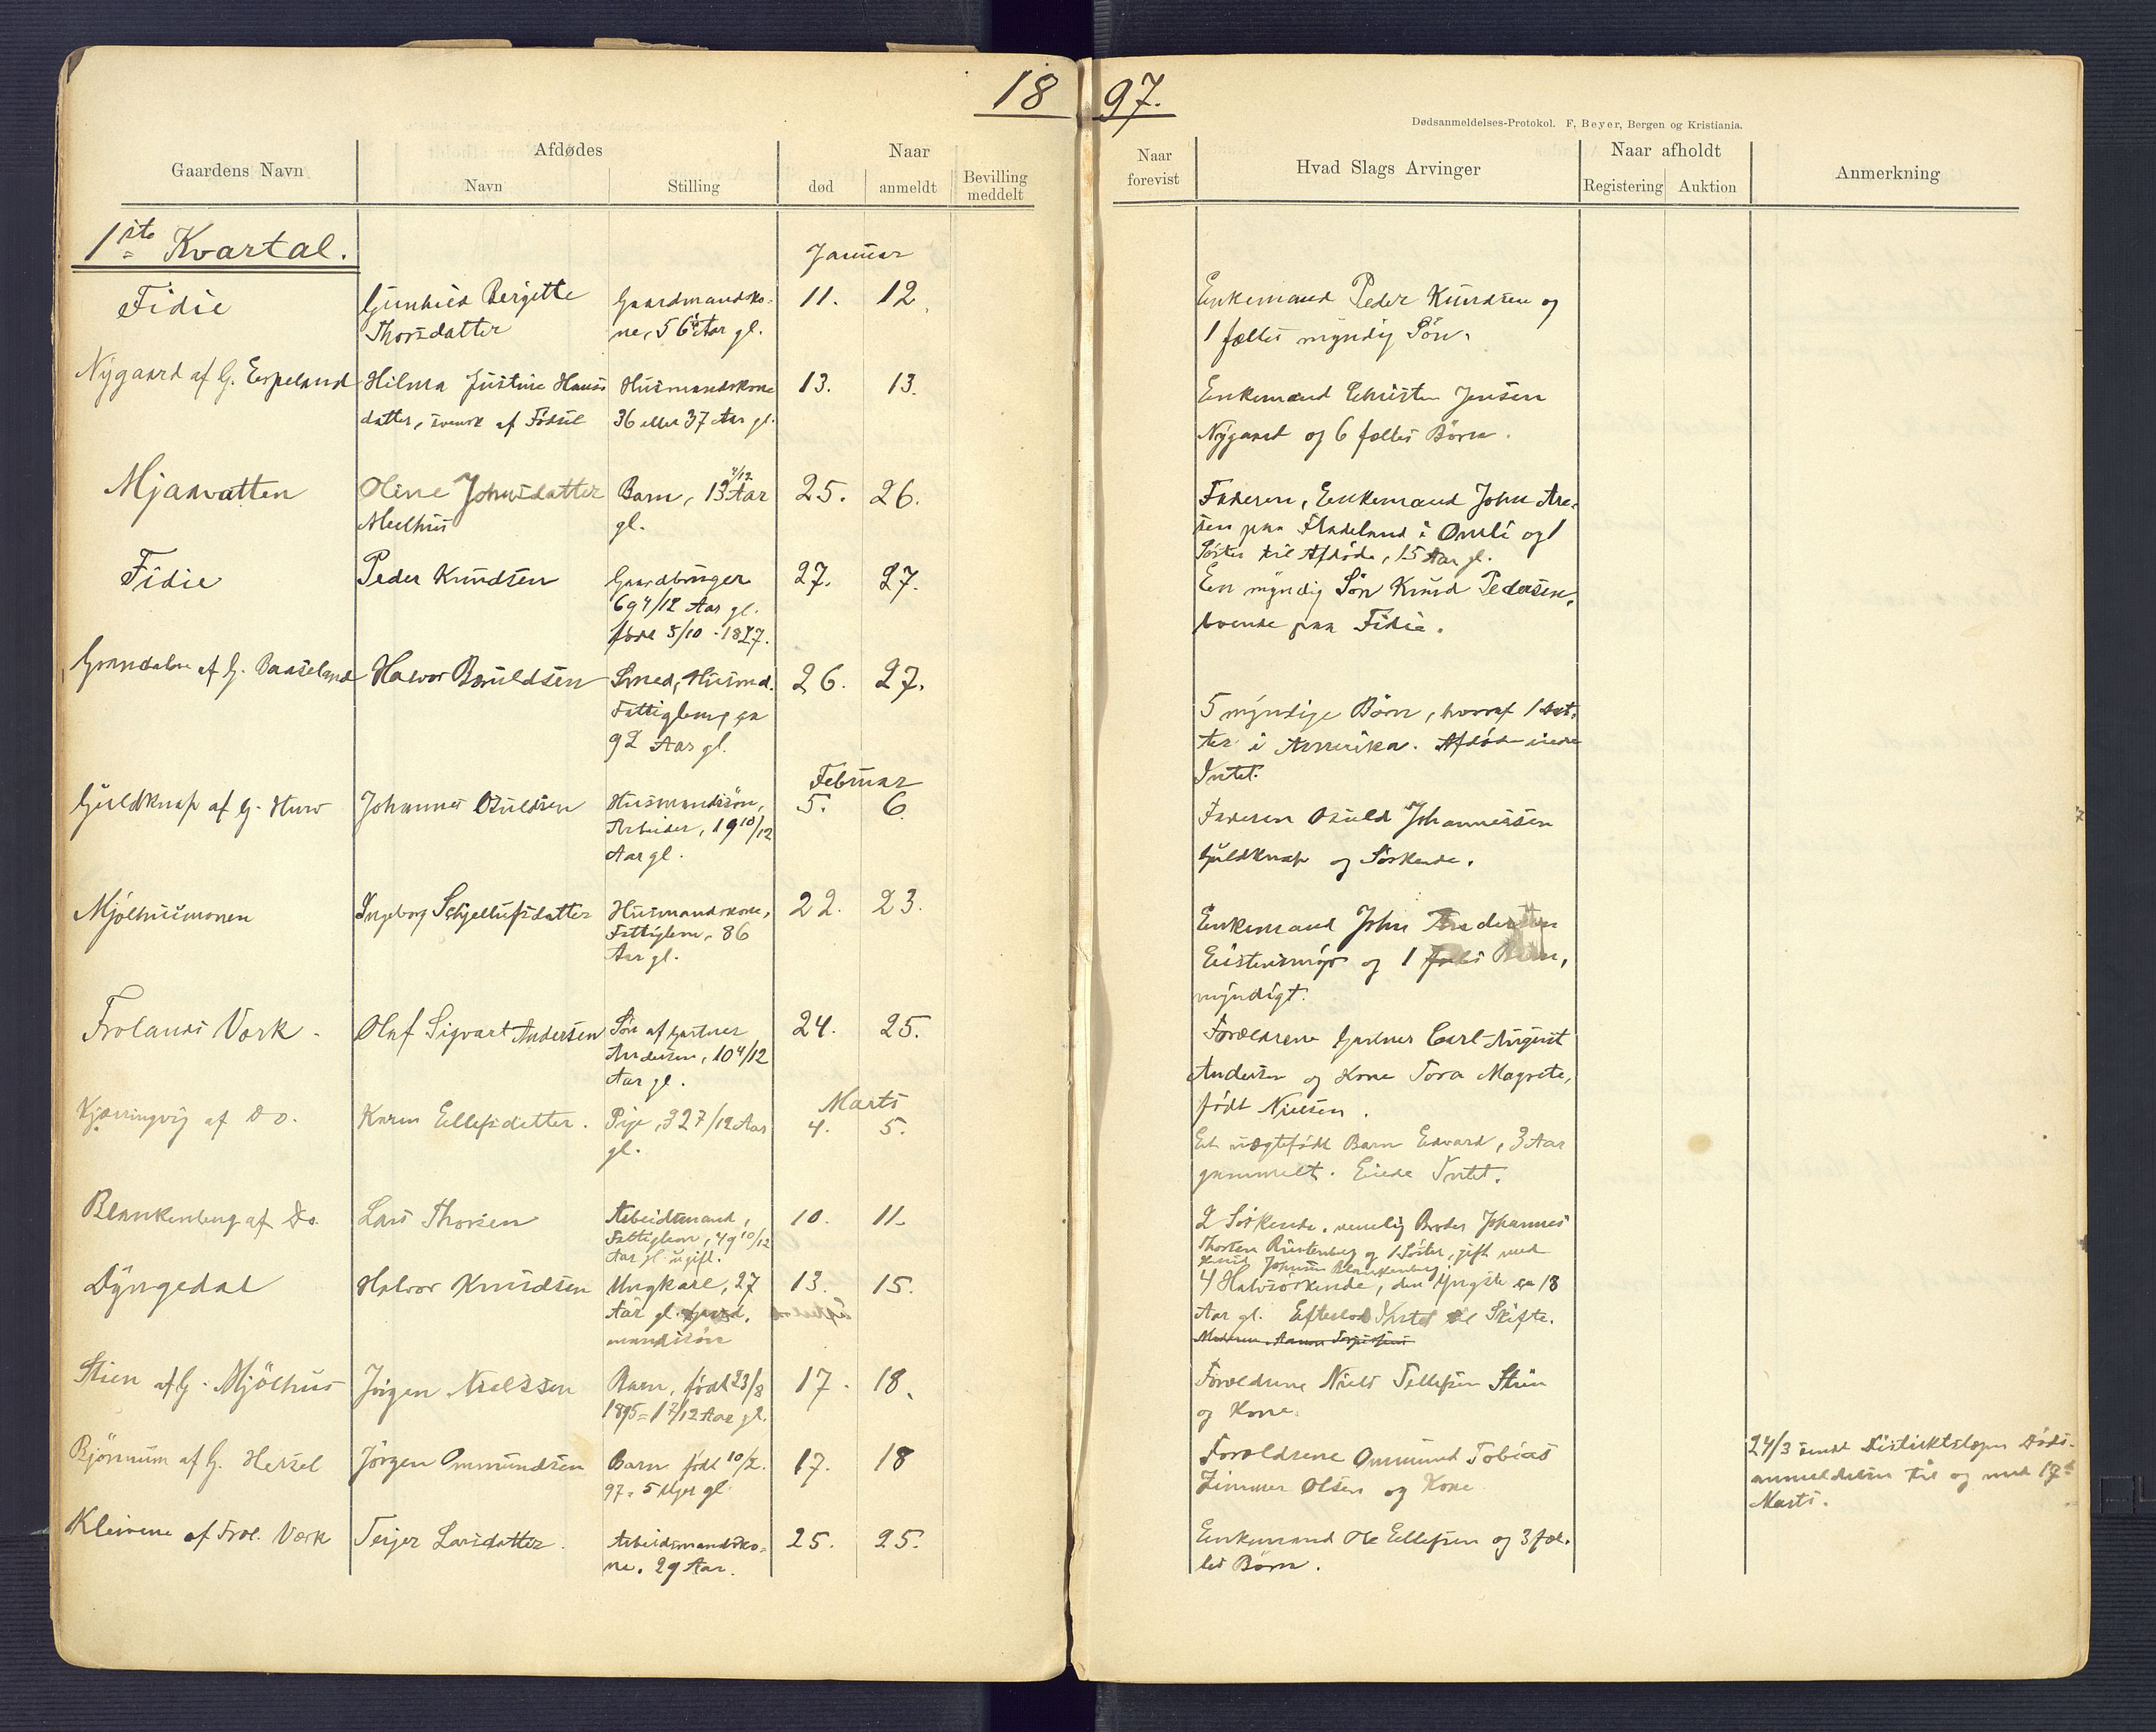 18 97.
Dødsanmeldelses-Protokol. F. Beyer, Bergen og Kristiania.
Gaardens Navn
Afdødes
Navn
Stilling
Naar
død
anmeldt
Bevilling
meddelt
Naar
forevist
Hvad Slags Arvinger
Naar afholdt
Registering
Auktion
Anmerkning
1ste Kvartal.
Januar
Fidie
Gunhild Bergitte
Thorsdatter
Gaardmandsko-
ne, 56 Aar gl.
11. 12.
Enkemand Peder Knudsen og
1 fælles myndig Søn.
Nygaard af G. Espeland
Hilma Justine Hans
datter, svensk af Fødsel
Husmandskone
36 eller 37 Aar gl.
13. 13.
Enkemand Christen Jensen
Nygaard og 6 fælles Børn.
Mjaavatten
Oline Johnsdatter
Mælhus
Barn, 13 /12 Aar
gl.
25. 26.
Faderen, Enkemand John Are-
sen paa Fladeland i Omli og 1
Søster til Afdøde, 15 Aar gl.
Fidie
Peder Knudsen
Gaardbruger
69 4/12 Aar gl.
født 5/10 - 1827.
27. 27.
En myndig Søn Knud Pedersen,
boende paa Fidie.
Grændalen af G. Baaseland
Halvor Osuldsen
Smed, Husmd.
Fattiglem, ca
92 Aar gl.
26. 27.
5 myndige Børn, hvoraf 1 Dat-
ter i Amerika. Afdøde eiede
Intet.
Februar
Guldknap af G. Hurv
Johannes Osuldsen
Husmandssøn,
Arbeider, 19 10/12
Aar gl.
5. 6
Faderen Osuld Johannessen
Guldknap og Søskende.
Mjølhusmonen
Ingeborg Schjellufsdatter
Husmandskone,
Fattiglem, 86
Aar gl.
22. 23.
Enkemand John
og 1 fælles Barn,
myndigt.
Frolands Værk
Olaf Sigvart Andersen
Søn af Gartner
Andersen, 10 4/12
Aar gl.
24. 25.
Forældrene Gartner Carl August
Andersen og Kone Tora Magrete,
født Nielsen.
Marts
Kjærringvig af Do.
Karen Ellefsdatter.
Pige, 32 7/12 Aar
gl.
4. 5.
Et uægtefødt Barn Edvard, 3 Aar
gammelt. Eiede Intet.
Blankenberg af Do.
Lars Thorsen
Arbeidsmand,
Fattiglem, 49 10/12
Aar gl. ugift.
10. 11.
2 Søskende, nemlig Broder Johannes
Thorsen Rustenberg og 1 Søster, gift med
Knud Johnsen Blankenberg.
Dyngedal
Halvor Knudsen
Ungkarl, 27
Aar gl. Gaard-
mandssøn
13. 15.
4 Halvsøskende, den yngste ca 18
Aar gl. Efterlod Intet til Skifte.
Stien af G. Mjølhus
Jørgen Nielssen
Barn, født 23/8
1895 = 1 7/12 Aar gl.
17. 18.
Forældrene Niels Tellefsen Stien
og Kone.
Bjørnum af G. Herøl
Jørgen Ommundsen
Barn født 10/2
97 = 5 Uger gl.
17. 18
Forældrene Ommund Tobias
Zimmer Olsen og Kone
24/3 sendt Distriktslægen Døds-
anmeldelsen til og med 17de
Marts.
Kleivene af Frol. Værk
Terjer Larsdatter.
Arbeidsmandsko-
ne. 29 Aar.
25. 25.
Enkemand Ole Ellefsen og 3 fæl-
les Børn.